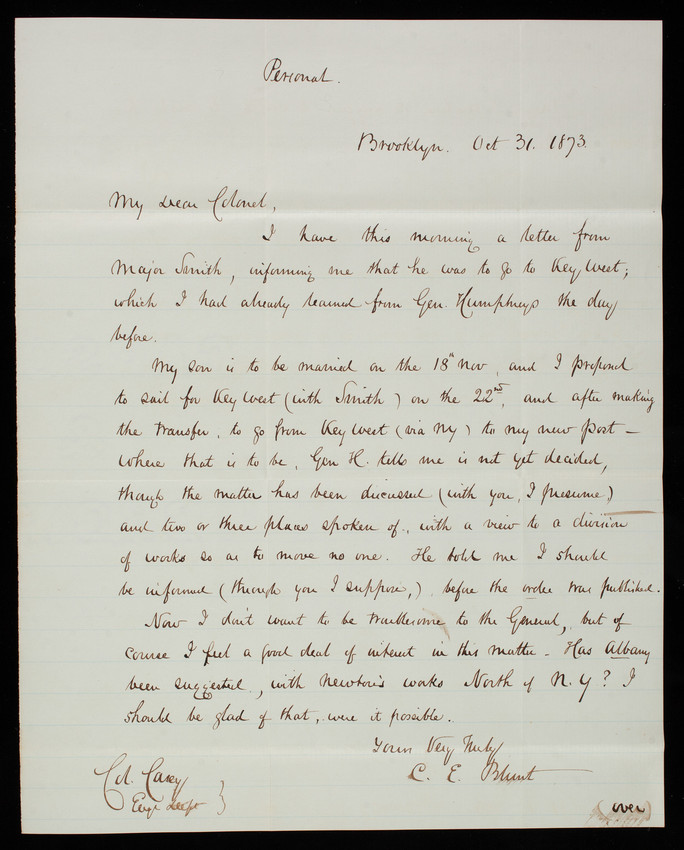 Personal.
Brooklyn. Oct 31. 1873.
My dear Colonel,
I have this morning a letter from
Major Smith, informing me that he was to go to Key West;
which I had already learned from Gen. Humphreys the day
before.
My son is to be married on the 18th Nov, and I propose
to sail for Key West (with Smith) on the 22nd, and after making
the transfer, to go from Key West (via NY) to my new post —
Where that is to be, Gen H. tells me is not yet decided,
though the matter has been discussed (with you, I presume,)
and two or three places spoken of, with a view to a division
of works so as to move no one. He told me I should
be informed (through you I suppose,) before the order was published.
Now I don't want to be troublesome to the General, but of
course I feel a good deal of interest in this matter - Has Albany
been suggested, with Newton's works North of N.Y? I
should be glad of that, were it possible.
Yours Very Truly
C. E. Blunt
Col. Casey
Engr Dept }
(over)